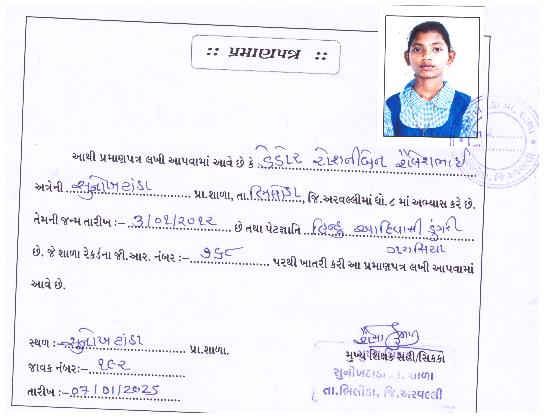 :: પ્રમાણપત્ર ::
આથી પ્રમાણપત્ર લખી આપવામાં આવે છે કે ડેડોર રોશનીબેન શૈલેષભાઈ
અત્રેની સુનોખટાંડા પ્રા.શાળા, તા. ભિલોડા, જિ.અરવલ્લીમાં ધો.૮ માં અભ્યાસ કરે છે.
તેમની જન્મ તારીખ :- 3/૦૧/૨૦૧૨ છે તથા પેટાજ્ઞાતિ હિન્દુ આદિવાસી ડુંગરી
ગરાસિયા
છે. જે શાળા રેકર્ડના જી.આર. નંબર :- ૭૬૮ પરથી ખાતરી કરી આ પ્રમાણપત્ર લખી આપવામાં
આવે છે.
સ્થળ :- સુનોખટાંડા પ્રા.શાળા.
જાવક નંબર:- ૧૯૨
તારીખ :- 07/01/2025
મુખ્ય શિક્ષક સહી/સિક્કો
સુનોખટાંડા પ્રા. શાળા
તા.ભિલોડા, જિ.અરવલ્લી